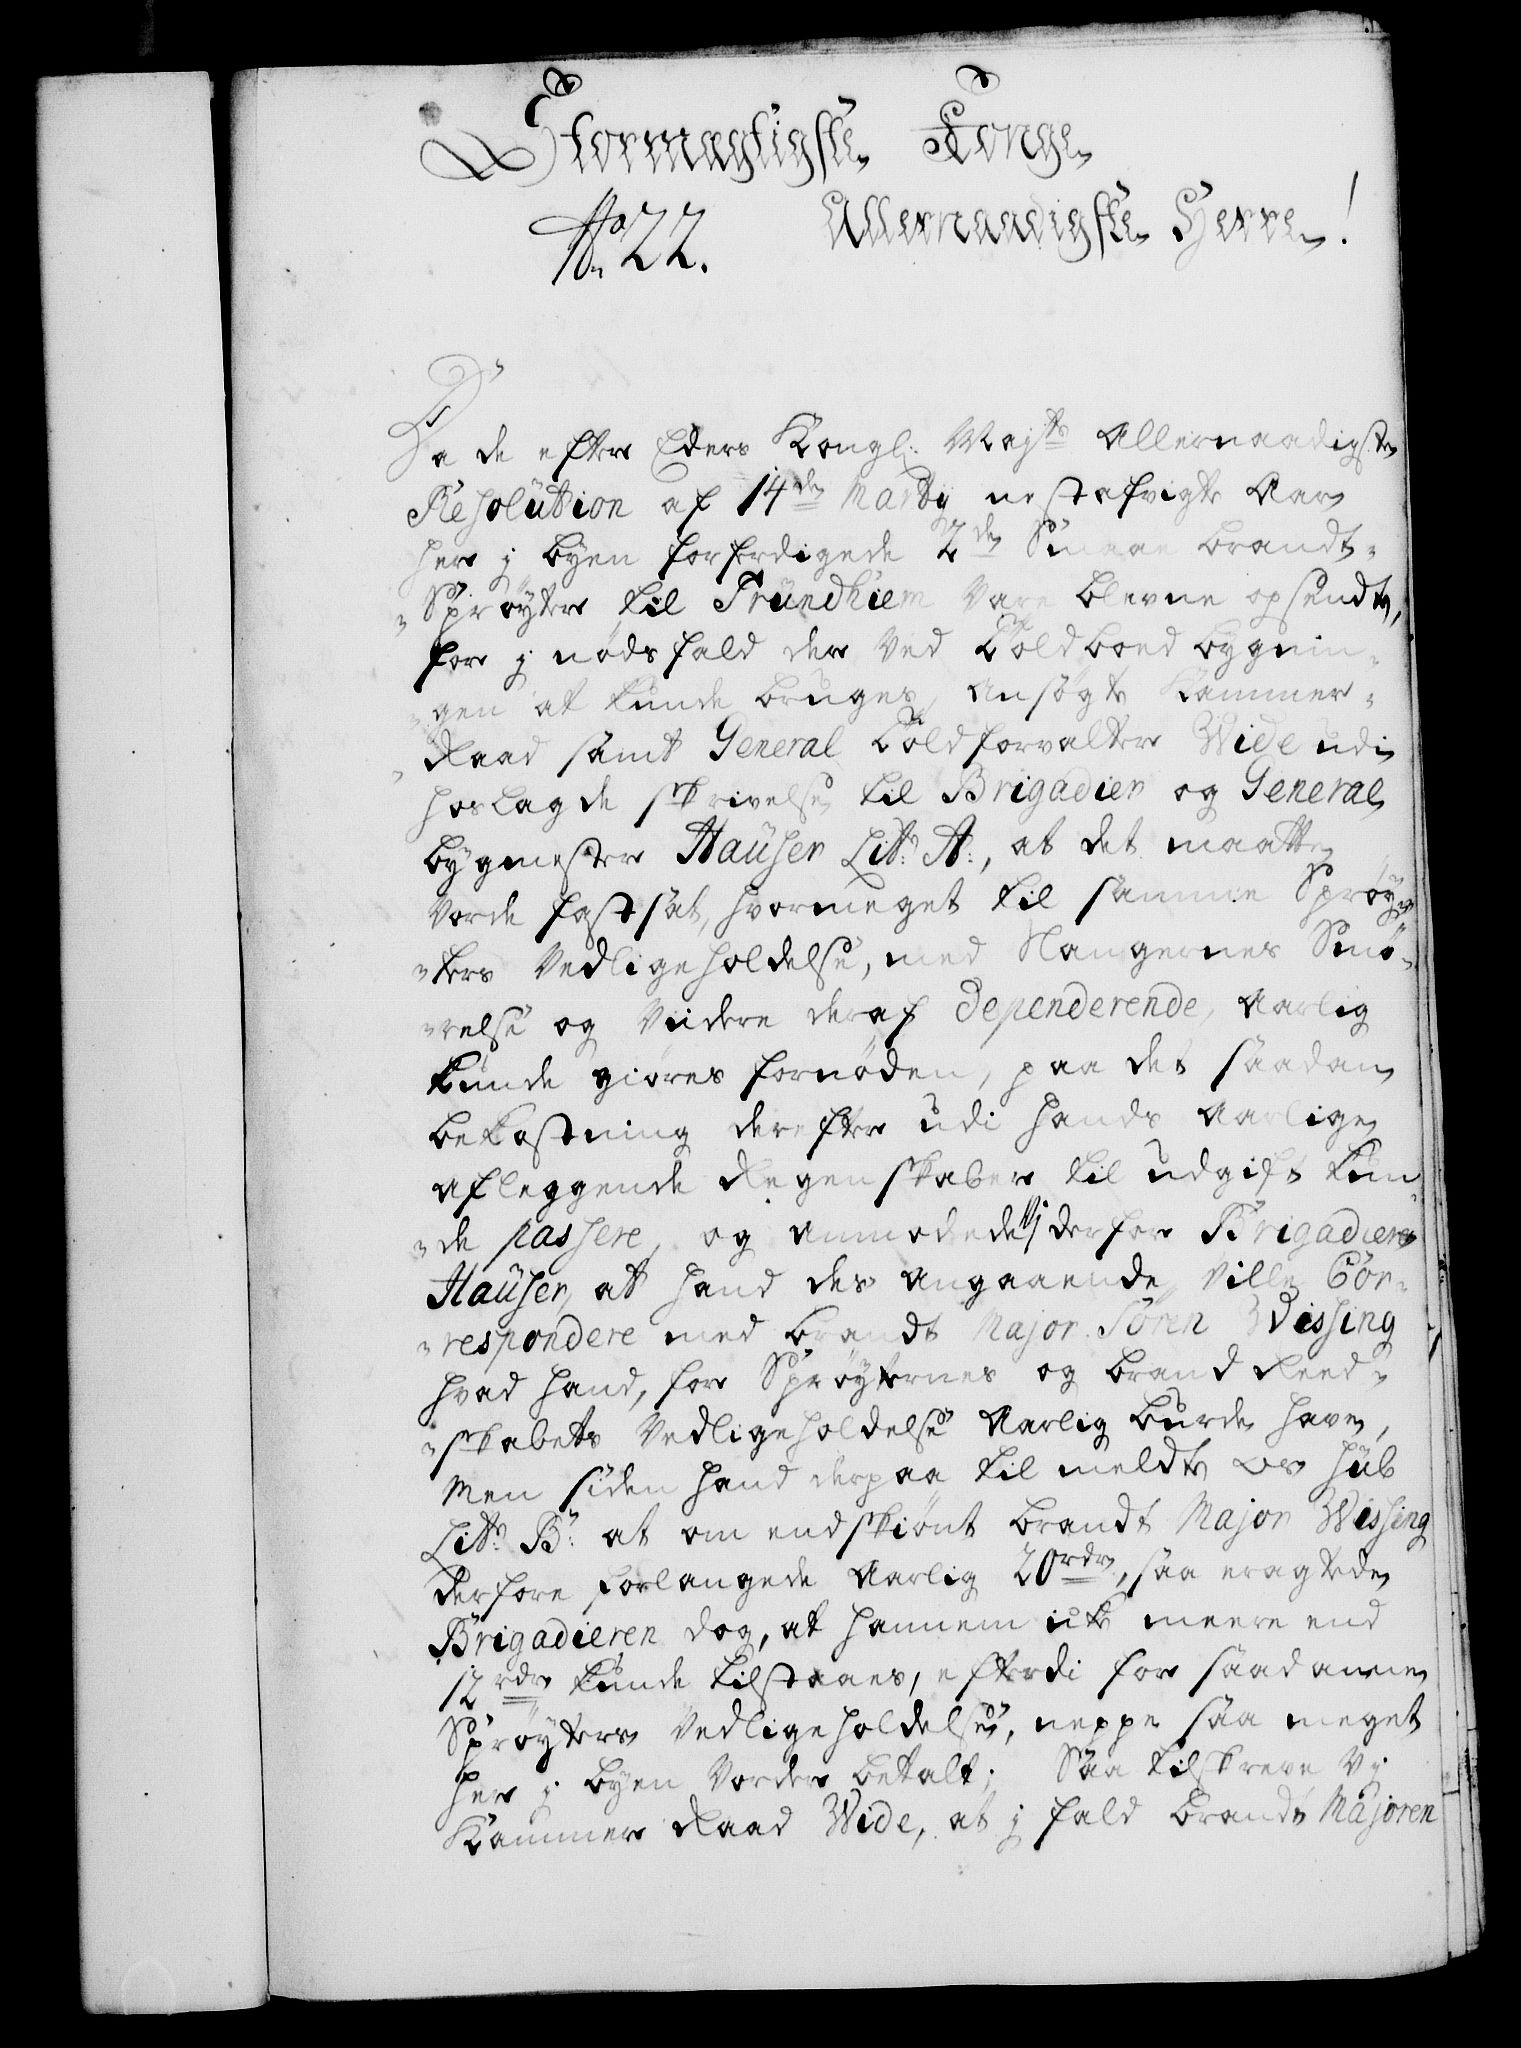 Stormægtigste Konge
No 22. Allernaadigste Herre!
Da de efter Eders Kongl: Majts Allernaadigste
Resolution af 14de Marty nestafvigte Aar
her j byen forferdigede 2de Smaae brandt-
Sprøyter til Trundhiem vare blevne opsendt,
for j nødsfald der ved Toldboed bygnin-
gen at kunde bruges, ansøgte Kammer-
Raad samt General Toldforvalter Wide udi
hoslagde skrivelse til Brigadier og General
bygmester Hauser Litr. A:, at det maatte
vorde fastsat, hvormeget til samme Sprøy-
ters Vedligeholdelse, med Slangernes Smø-
relse og Viidere deraf dependerende, Aarlig
kunde giøres fornøden, paa det saadan
bekostning derefter udi hands Aarlige
aflæggende Regenskaber til udgift kun-
de passere, og anmodede Vj derfor Brigadier
Hauser, at hand des angaaende ville Cor-
respondere med brandt Major Sören Wissing
hvad hand, for Sprøyternes og brand Reed-
skabets Vedligeholdelse Aarlig burde have,
Men siden hand derpaa til meldte os sub
Litr. B: at om endskiønt brandt Major Wissing
derfore forlangede Aarlig 20 rdr, saa eragtede
Brigadieren dog, at hannem icke meere end
12 rdr kunde tilstaaes, efterdi for saadanne
Sprøyters Vedligeholdelse, neppe saa meget
her j byen vorder betalt; Saa tilskreve Vj
Kammer Raad Wide, at j fald brandt Majoren